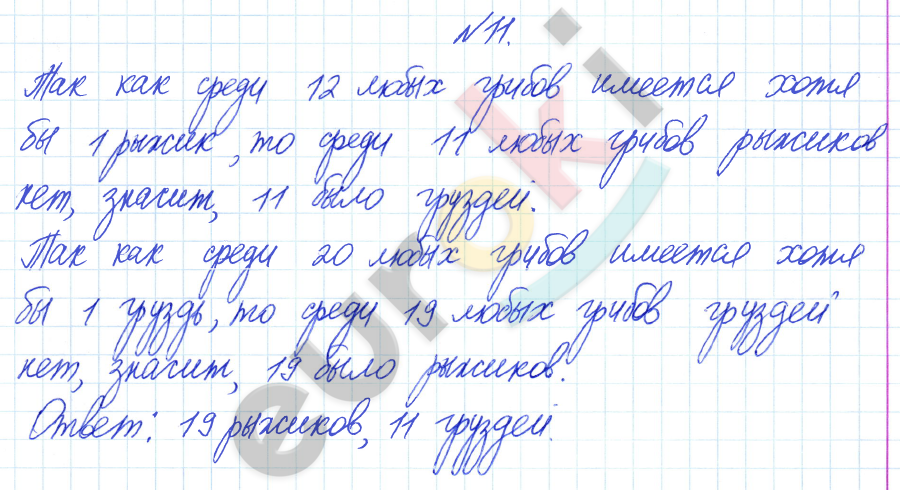 № 11.
Так как среди 12 любых грибов имеется хотя
бы 1 рыжик, то среди 11 любых грибов рыжиков
нет, значит, 11 было груздей.
Так как среди 20 любых грибов имеется хотя
бы 1 груздь, то среди 19 любых грибов груздей
нет, значит, 19 было рыжиков.
Ответ: 19 рыжиков, 11 груздей.
euroki